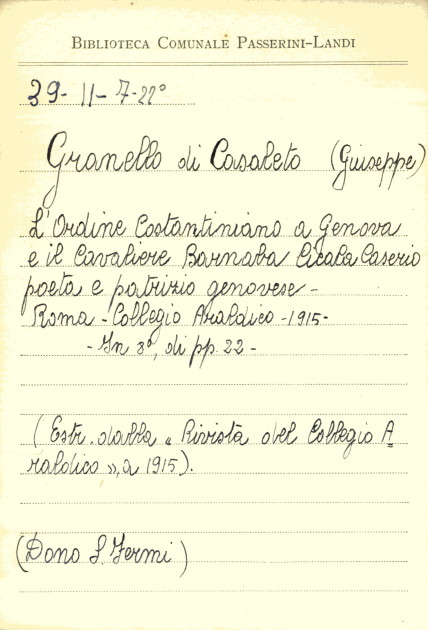 BIBLIOTECA COMUNALE PASSERINI-LANDI
39-11-7-22°
Granello di Casaleto (Giuseppe)
L'Ordine Costantiniano a Genova
e il Cavaliere Barnaba Cicala Caserio
poeta e patrizio genovese-
Roma-Collegio Araldico-1915-
-In 8°, di pp. 22-
(Estr. dalla « Rivista del Collegio A=
raldico », a 1915).
(Dono S. Fermi)